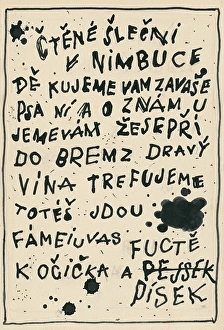 ČTĚNÉ ŠLEČNĚ
V NIMBUCE
DĚ KUJEME VAM ZAVAŠE
PSA NÍ A O ZNÁM, U
JEMEVÁM ŽESEPŘI
DO BREMZ DRAVÝ
VÍNA TREFUJEME
TOTÉŠ JDOU
FÁMEIUVAS
FUCTĚ
KOČIČKA A PEJSEK
PÍSEK